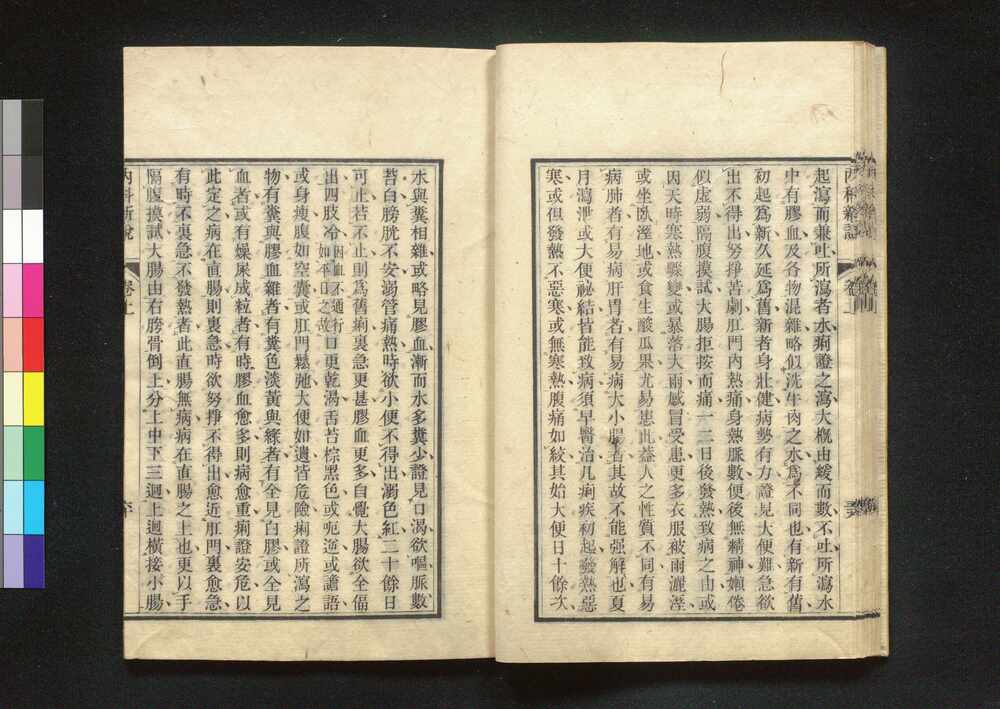 起瀉而兼吐所瀉者水痢證之瀉大概由緩而數不吐所瀉水
中有膠血及各物混雜略似洗牛肉之水爲不同也有新有舊
初起爲新久延爲舊新者身壯健病勢有力證見大便難急欲
出不得出努掙苦劇肛門內熱痛身熱脈數便後無精神嬾倦
似虛弱隔腹摸試大腸拒按而痛一二日後發熱致病之由或
因天時寒熱驟變或暴落大雨感冒受患更多衣服被雨灑溼
或坐臥溼地或食生酸瓜果尤易患此蓋人之性質不同有易
病肺者有易病肝胃者有易病大小腸者其故不能强解也夏
月瀉泄或大便祕結皆能致病須早醫治凡痢疾初起發熱惡
寒或但發熱不惡寒或無寒熱腹痛如絞其始大便日十餘次
水與糞相雜或略見膠血漸而水多糞少證見口渴欲嘔脈數
苔白膀胱不安溺管痛熱時欲小便不得出溺色紅二十餘日
可止若不止則爲舊痢裏急更甚膠血更多自覺大腸欲全傴
出四肢冷因血不通行如平日之故口更乾渴舌苔棕黑色或呃逆或譫語
或身瘦腹如空囊或肛門鬆弛大便如遺皆危險痢證所瀉之
物有糞與膠血雜者有糞色淡黃與綠者有全見白膠或全見
血者或有燥屎成粒者有時膠血愈多則病愈重痢證安危以
此定之病在直腸則裏急時欲努掙不得出愈近肛門裏愈急
有時不裏急不發熱者此直腸無病病在直腸之上也更以手
隔腹摸試大腸由右胯骨倒上分上中下三迴上迴橫接小腸
內科新說
卷上